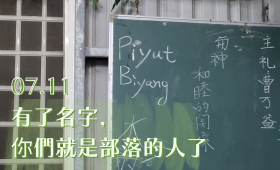 Piyut
Biyang
每神
和睦的國家
主礼曹万益
07.11
有了名字，
你們就是部落的人了